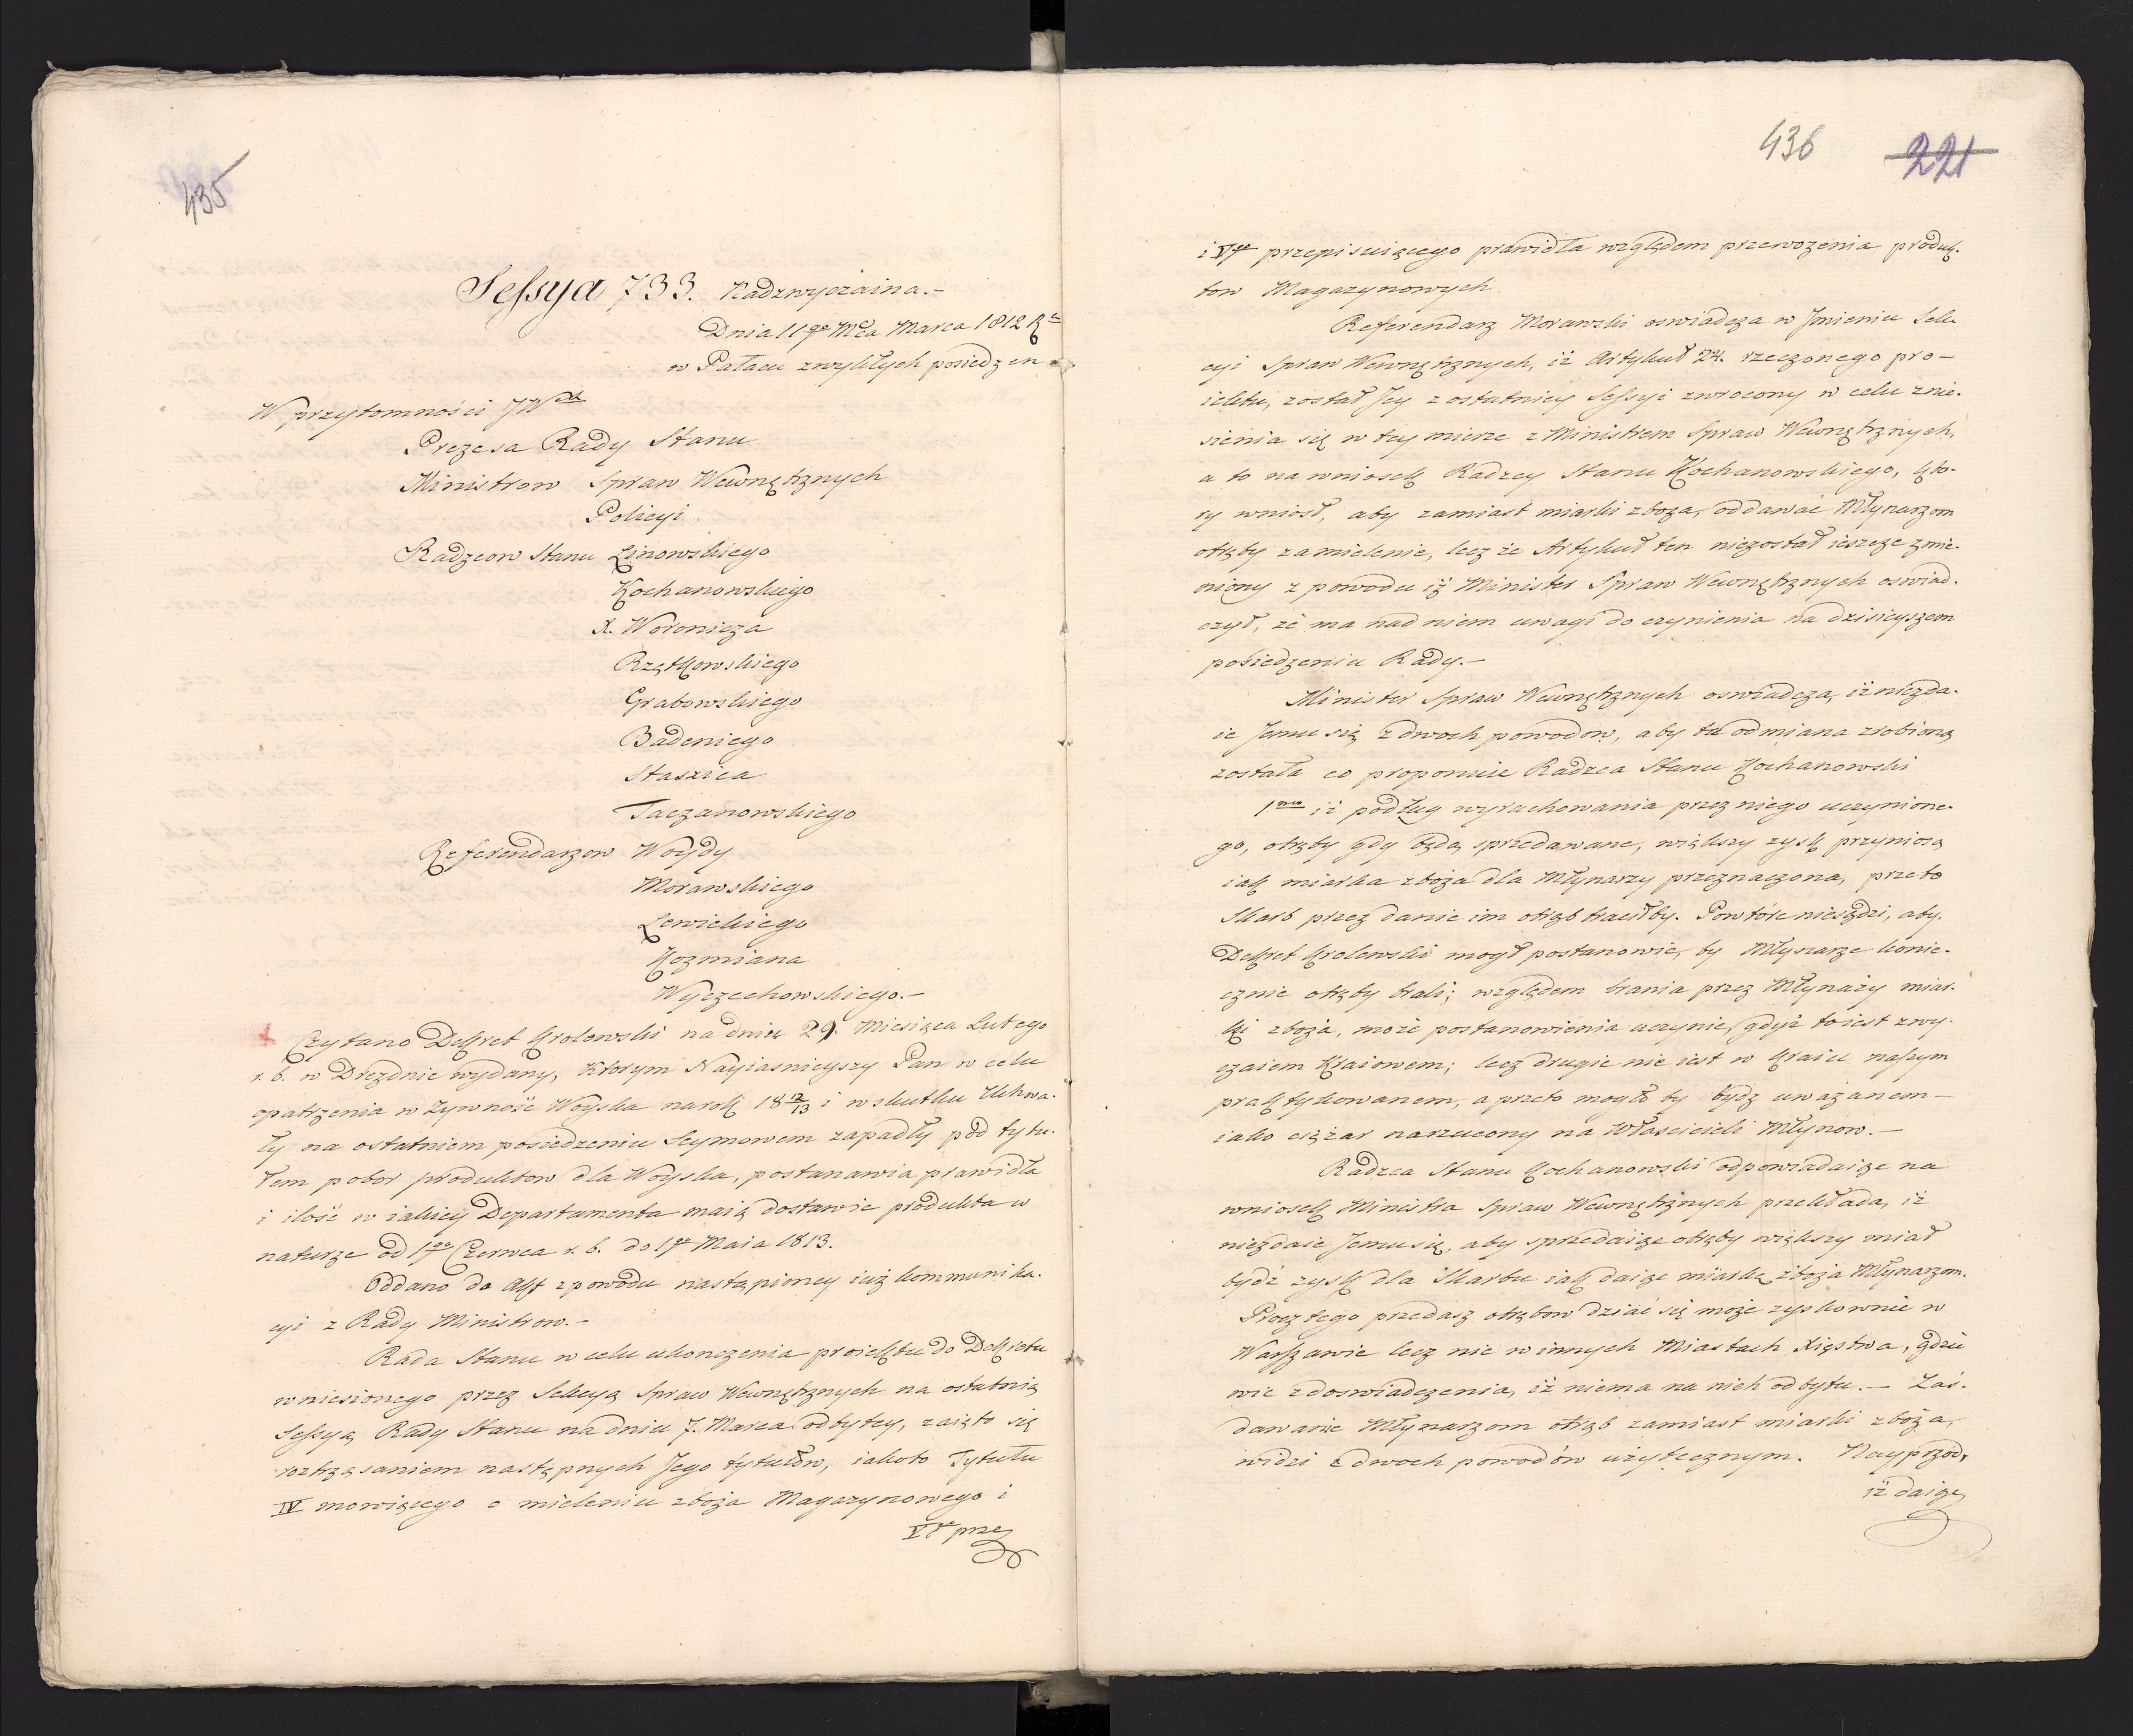 435
Sessya 733. Nadzwyczaina.-
Dnia 11go Mca Marca 1812 Ru
w Pałacu zwykłych posiedzen
W przytomności JWch
Prezesa Rady Stanu
Ministrow Spraw Wewnętrznych
Policyi
Radzcow Stanu Linowskiego
Kochanowskiego
X. Woronicza
Rzętkowskiego
Grabowskiego
Badeniego
Staszica
Taczanowskiego
Referendarzow Woydy
Morawskiego
Lewickiego
Kozmiana
Wyczechowskiego.-
Czytano Dekret Krolewski na dniu 29. Miesiąca Lutego
r. b. w Dreznie wydany, Ktorym Nayiasnieyszy Pan w celu
opatrzenia w żywność Woyska na rok 18 12/13 i w skutku Uchwa-
ły na ostatniem posiedzeniu Seymowem zapadły pod tytu-
łem pobor produktow dla Woyska, postanawia prawidła
i ilość w iakiey Departamenta maią dostawić produkta w
naturze od 1go Czerwca r. b. do 1go Maia 1813.
Oddano do Akt z powodu nastąpioney iuż kommunika-
cyi z Rady Ministrow.-
Rada Stanu w celu ukonczenia proiektu do Dekretu
wniesionego przez Sekcyą Spraw Wewnętrznych na ostatnią
Sessyą Rady Stanu na dniu 7. Marca odbytey, zaięto się
roztrząsaniem następnych Jego tytułów, iakoto Tytułu
IV mowiącego o mieleniu zboża Magazynowego i
Vgo prze
436 221
i Vgo przepisuiącego prawidła względem przewozenia produk-
tow Magazynowych
Referendarz Morawski oswiadcza w Jmieniu Sek-
cyi Spraw Wewnętrznych, iż Artykuł 24. rzeczonego pro-
iektu, został Jey z ostatniey Sessyi zwrocony w celu znie-
sienia się w tey mierze z Ministrem Spraw Wewnętrznych,
a to na wniosek Radzcy Stanu Kochanowskiego, kto-
ry wniosł, aby zamiast miarki zboza, oddawać Młynarzom
otręby za mielenie, lecz że Artykuł ten niezostał ieszcze zmie-
niony z powodu iż Minister Spraw Wewnętrznych oswiad-
czył, że ma nad niem uwagi do czynienia na dzisieyszem
posiedzeniu Rady.-
Minister Spraw Wewnętrznych oswiadcza, iż niezda-
ie Jemu się z dwoch powodow, aby ta odmiana zrobioną
została co proponuie Radzca Stanu Kochanowski
1mo iż podług wyrachowania przez niego uczynione-
go, otręby gdy będą sprzedawane, większy zysk przyniosą
iak miarka zboża dla Młynarzy przeznaczona, przeto
Skarb przez danie im otrąb traciłby. Powtóre niesądzi, aby
Dekret Krolewski mogł postanowić, by Młynarze konie-
cznie otręby brali; względem brania przez Młynaży miar-
ki zboża, może postanowienia uczynić, gdyż toiest zwy-
czaiem Kraiowem; lecz drugie nie iest w kraiu naszym
praktykowanem, a przeto mogło by bydz uważanem-
iako ciężar narzucony na Włascicieli Młynow.-
Radzca Stanu Kochanowski odpowiadaiąc na
wniosek Ministra Spraw Wewnętrznych przekłada, iż
niezdaie Jemu się, aby sprzedaiąc otręby większy miał
bydź zysk dla Skarbu iak daiąc miarkę zboża Młynarzom.
Procz tego przedasz otrębow dziać się może zyskownie w
Warszawie lecz nie w innych Miastach Xięstwa, gdzie
wie z doswiadczenia, iż niema na nich odbytu.- Zaś.
dawanie Młynarzom otrąb zamiast miarki zboża,
widzi z dwoch powodów użytecznym. Nayprzod,
iż daiąc